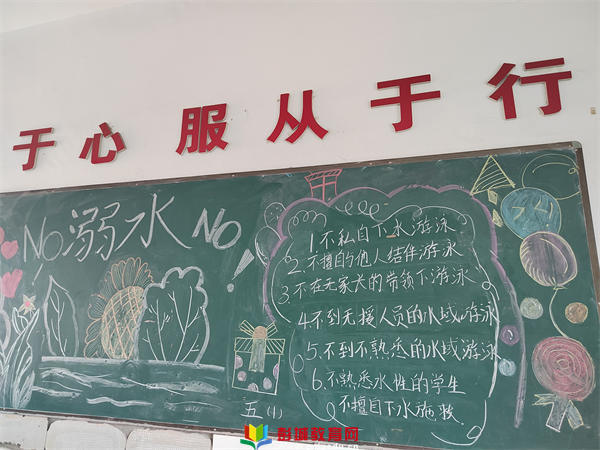 于心 服从于行
No溺水 No!
1.不私自下水游泳
2.不擅自与他人结伴游泳
3.不在无家长的带领下游泳
4.不到无援人员的水域游泳
5.不到不熟悉的水域游泳
6.不熟悉水性的学生
不擅自下水施救.
五(1)
彭城教育网